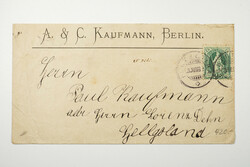 A. & C. KAUFMANN, BERLIN.
Herrn
Paul Kaufmann
adr Herrn Lorenz Dehn
Helgoland